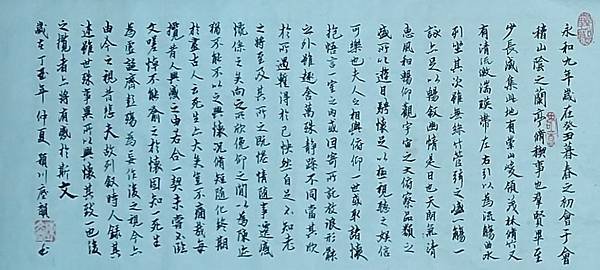 永和九年歲在癸丑暮春之初會于會
稽山陰之蘭亭脩稧事也羣賢畢至
少長咸集此地有崇山峻領茂林脩竹又
有清流激湍暎帶左右引以為流觴曲水
列坐其次雖無絲竹管弦之盛一觴一
詠亦足以暢叙幽情是日也天朗氣清
惠風和暢仰觀宇宙之大俯察品類之
盛所以遊目騁懷足以極視聽之娛信
可樂也夫人之相與俯仰一世或取諸懷
抱悟言一室之內或因寄所託放浪形骸
之外雖趣舍萬殊靜躁不同當其欣
於所遇蹔得於己怏然自足不知老
之將至及其所之既惓情隨事遷感
慨係之矣向之所欣俛仰之閒以為陳迹
猶不能不以之興懷況脩短隨化終期
於盡古人云死生亦大矣豈不痛哉每
攬昔人興感之由若合一契未嘗不臨
文嗟悼不能喻之於懷固知一死生
為虛誕齊彭殤為妄作後之視今亦
由今之視昔悲夫故列叙時人錄其
述雖世殊事異所以興懷其致一也後
之攬者亦將有感於斯文
歲在丁亥年仲夏